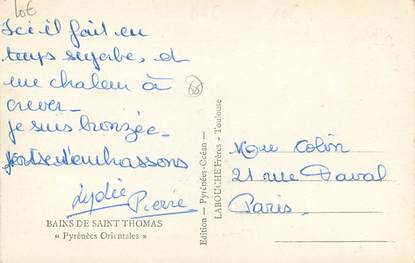 10€
Ici il fait un
temps superbe, et
une chaleur à
crever -
je suis bronzée -
embrassons
Lydie
Pierre
BAINS DE SAINT THOMAS
« Pyrénées Orientales »
Edition — Pyrénées-Océan —
LABOUCHE Frères - Toulouse
Mme Colin
21 rue Daval
Paris.